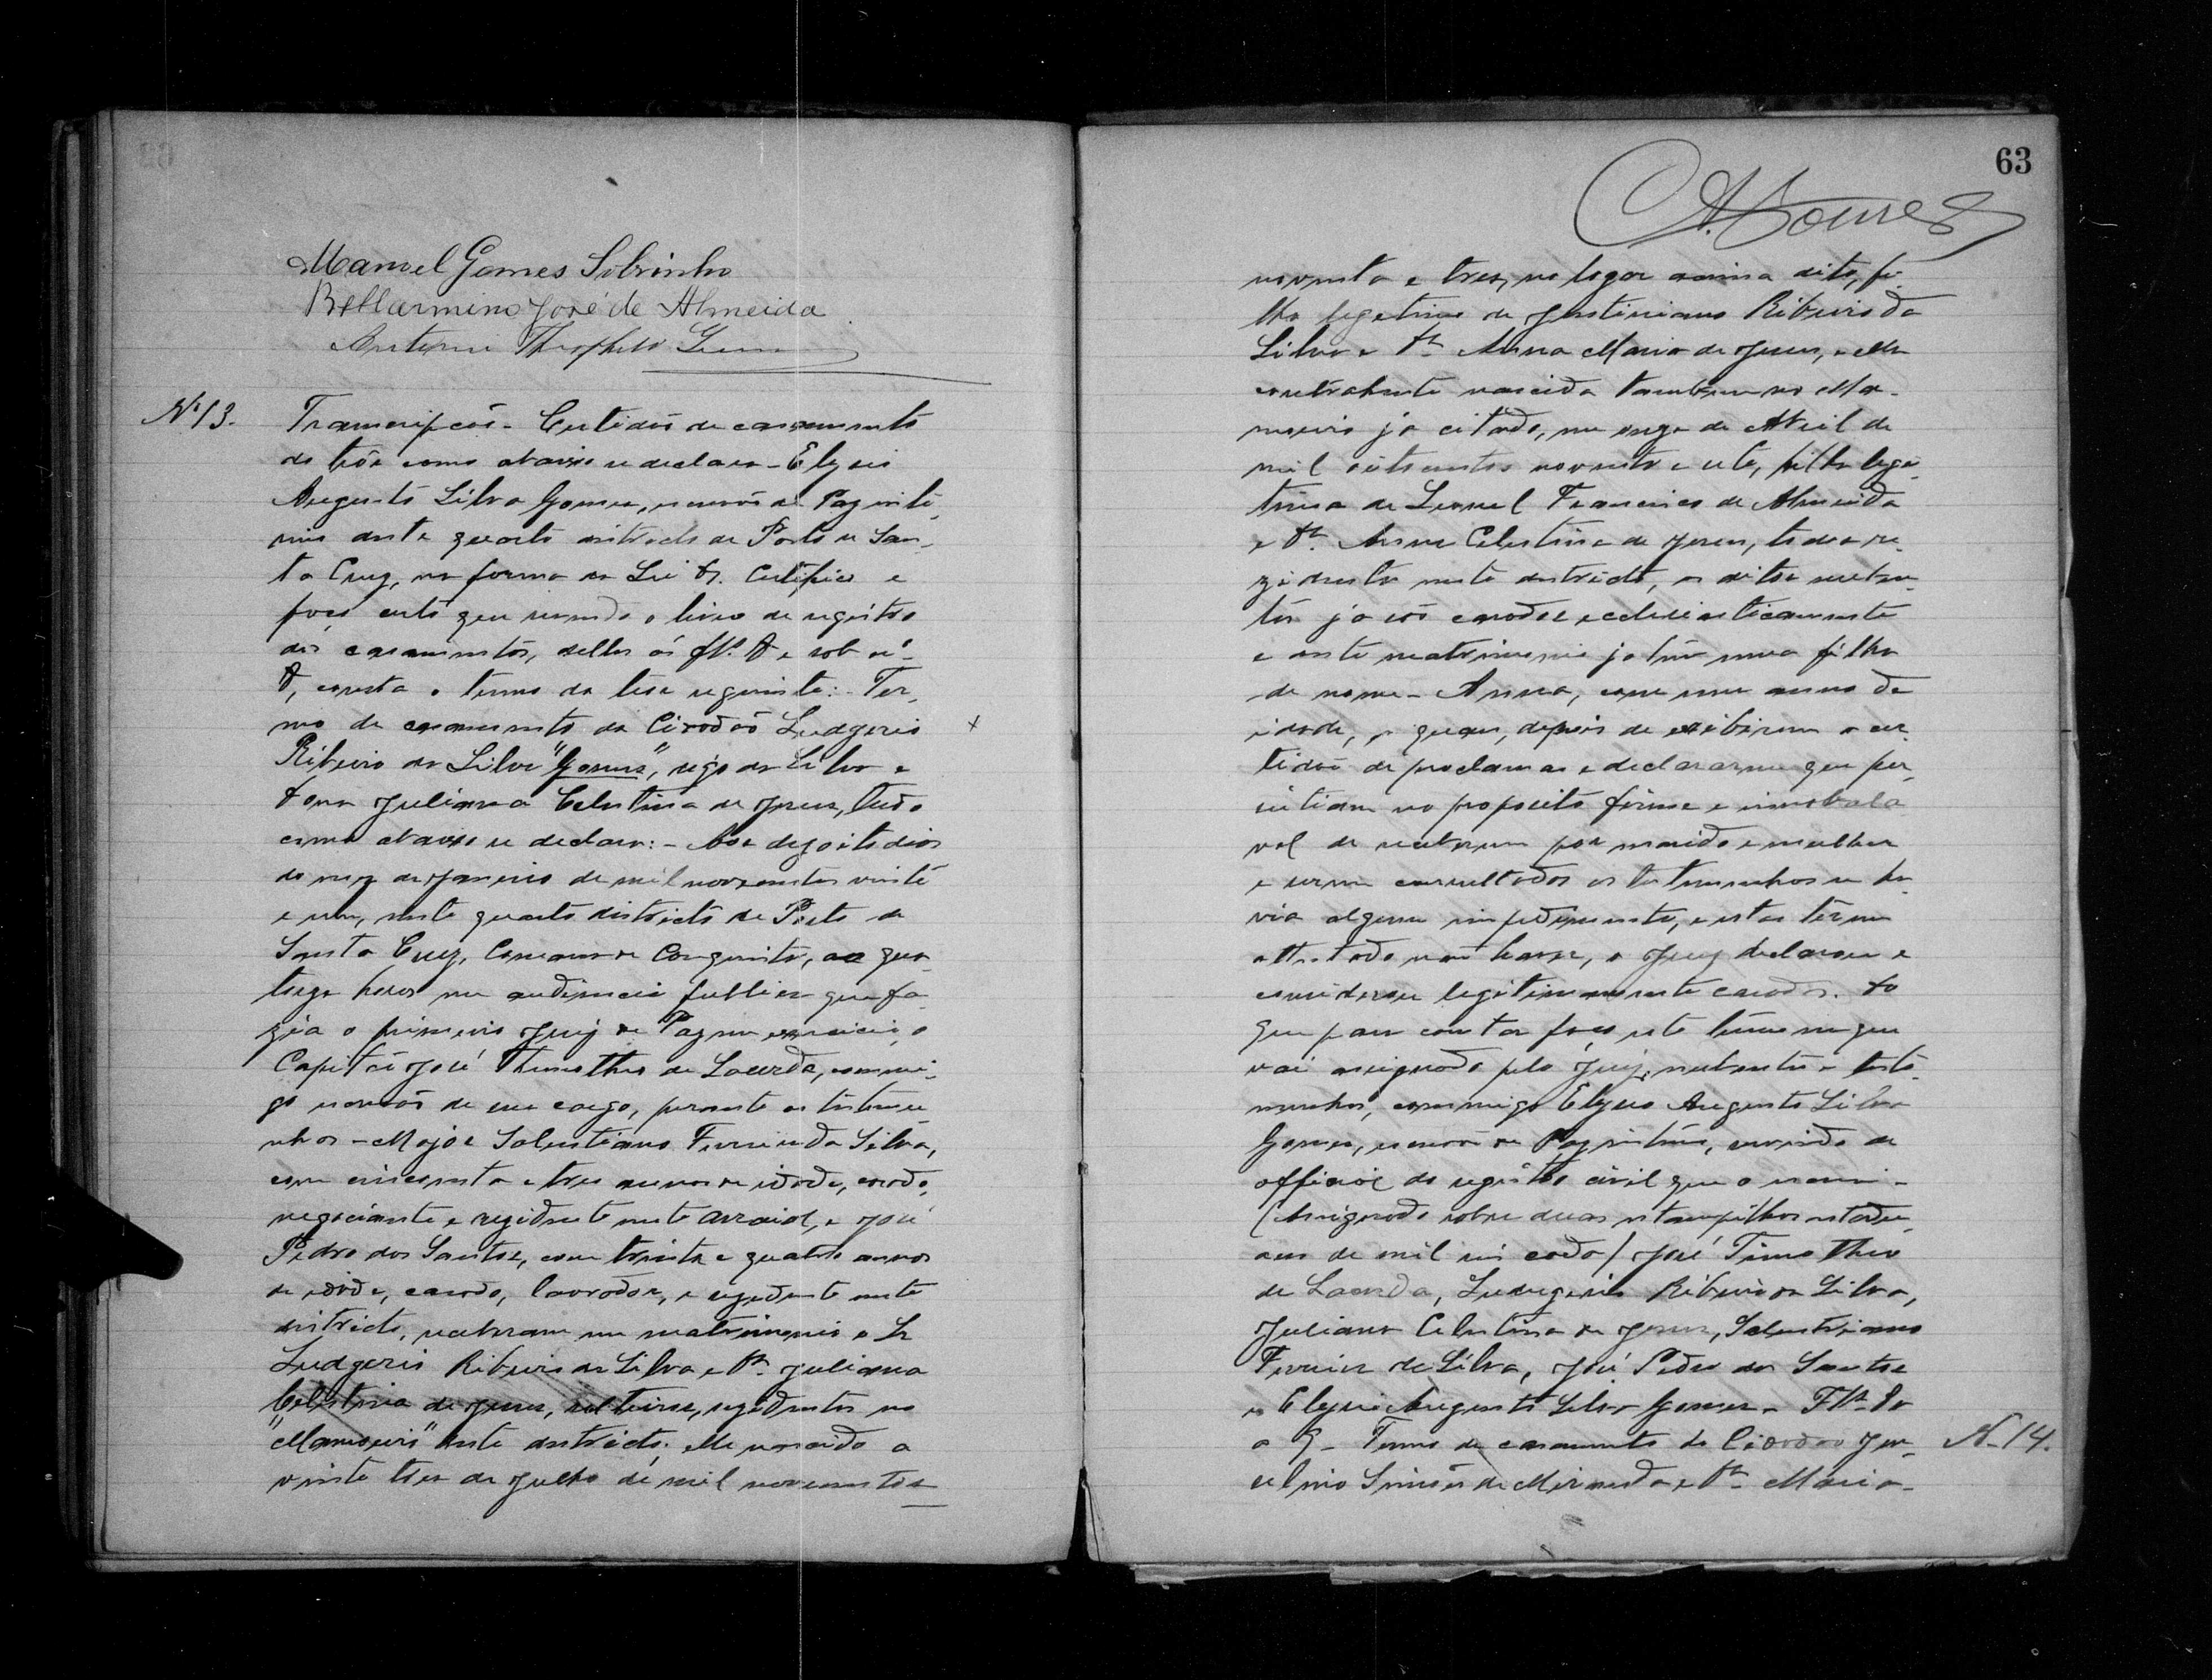 Manoel Gomes Sobrinho
Bellarmino José de Almeida
Antonio Theophilo
Nº 13.
Transcripção - Certidão de casamento
do theôr como abaixo se declara - Elyseo
Augusto Silva Gomes, escrivão de Paz
deste quarto districto de Porto de San-
ta Cruz, na forma da Lei &. Certifico e
faço certo que revendo o livro de registro
dos casamentos, delle ás fls. & e sob nº
&, consta o termo do theor seguinte: - Ter-
mo de casamento do Cidadão Ludgerio
Ribeiro da Silva "Gomes", digo da Silva e
dona Juliana Celestina de Jesus, tudo
como abaixo se declara: - Aos dezoito dias
do mez de Janeiro de mil novecentos vinte
e um, neste quarto districto de Porto de
Santa Cruz, Comarca de Conquista, as qua-
torze horas em audiencia publica que fa-
zia o primeiro Juiz de Paz em exercicio, o
Capitão José Thimotheo de Lacerda, commi-
go escrivão de seu cargo, perante as testemu-
nhas - Major Salustiano Ferreira da Silva,
com cincoenta e tres annos de idade, casado,
negociante e rezidente neste arraial, e José
Pedro dos Santos, com trinta e quatro annos
de idade, casado, lavrador, e rezidente neste
districto, receberam em matrimonio o Sr
Ludgerio Ribeiro da Silva e Dª. Juliana
Celestina de Jesus, solteiros, rezidentes no
deste districto. elle nascido a
vinte tres de Julho de mil novecentos
63
A. Soares
noventa e tres, no logar acima dito, fi-
lho legitimo de Justiniano Ribeiro da
Silva e Dª Anna Maria de Jesus, e ella
contrahente nascida tambem no
já citado, em onze de Abril de
mil oitocentos noventa e sete, filha legi-
tima de Leonel Francisco de Almeida
e Dª. Anna Celestina de Jesus, todos re-
zidentes neste districto, os ditos
já são casados ecclesiasticamente
e deste matrimonio já têm uma filha
de nome - Anna, com um anno de
idade, os quaes, depois de exibirem a cer-
tidão de proclamas e declararem que per-
sistiam no proposito firme e inabala
vel de receberem por marido e mulher
e serem consultados as testemunhas se ha-
via algum impedimento, e estas terem
attestado não haver, o Juiz declarou e
considerou legitimamente casados. Do
que para constar faço este termo em que
vai assignado pelo Juiz, nubentes e teste-
munhas, commigo Elyseo Augusto Silva
Gomes, escrivão de Paz servindo de
official do registro civil que o escrevi -
(Assignado sobre duas estampilhas estadu-
aes de mil reis cada) José Timotheo
de Lacerda, Ludugerio Ribeiro da Silva,
Juliana Celestina de Jesus, Salustiano
Ferreira da Silva, José Pedro dos Santos
e Elyseo Augusto Silva Gomes -
Termo de casamento do Cidadão
N. 14.
Simões de Miranda e Dª Maria